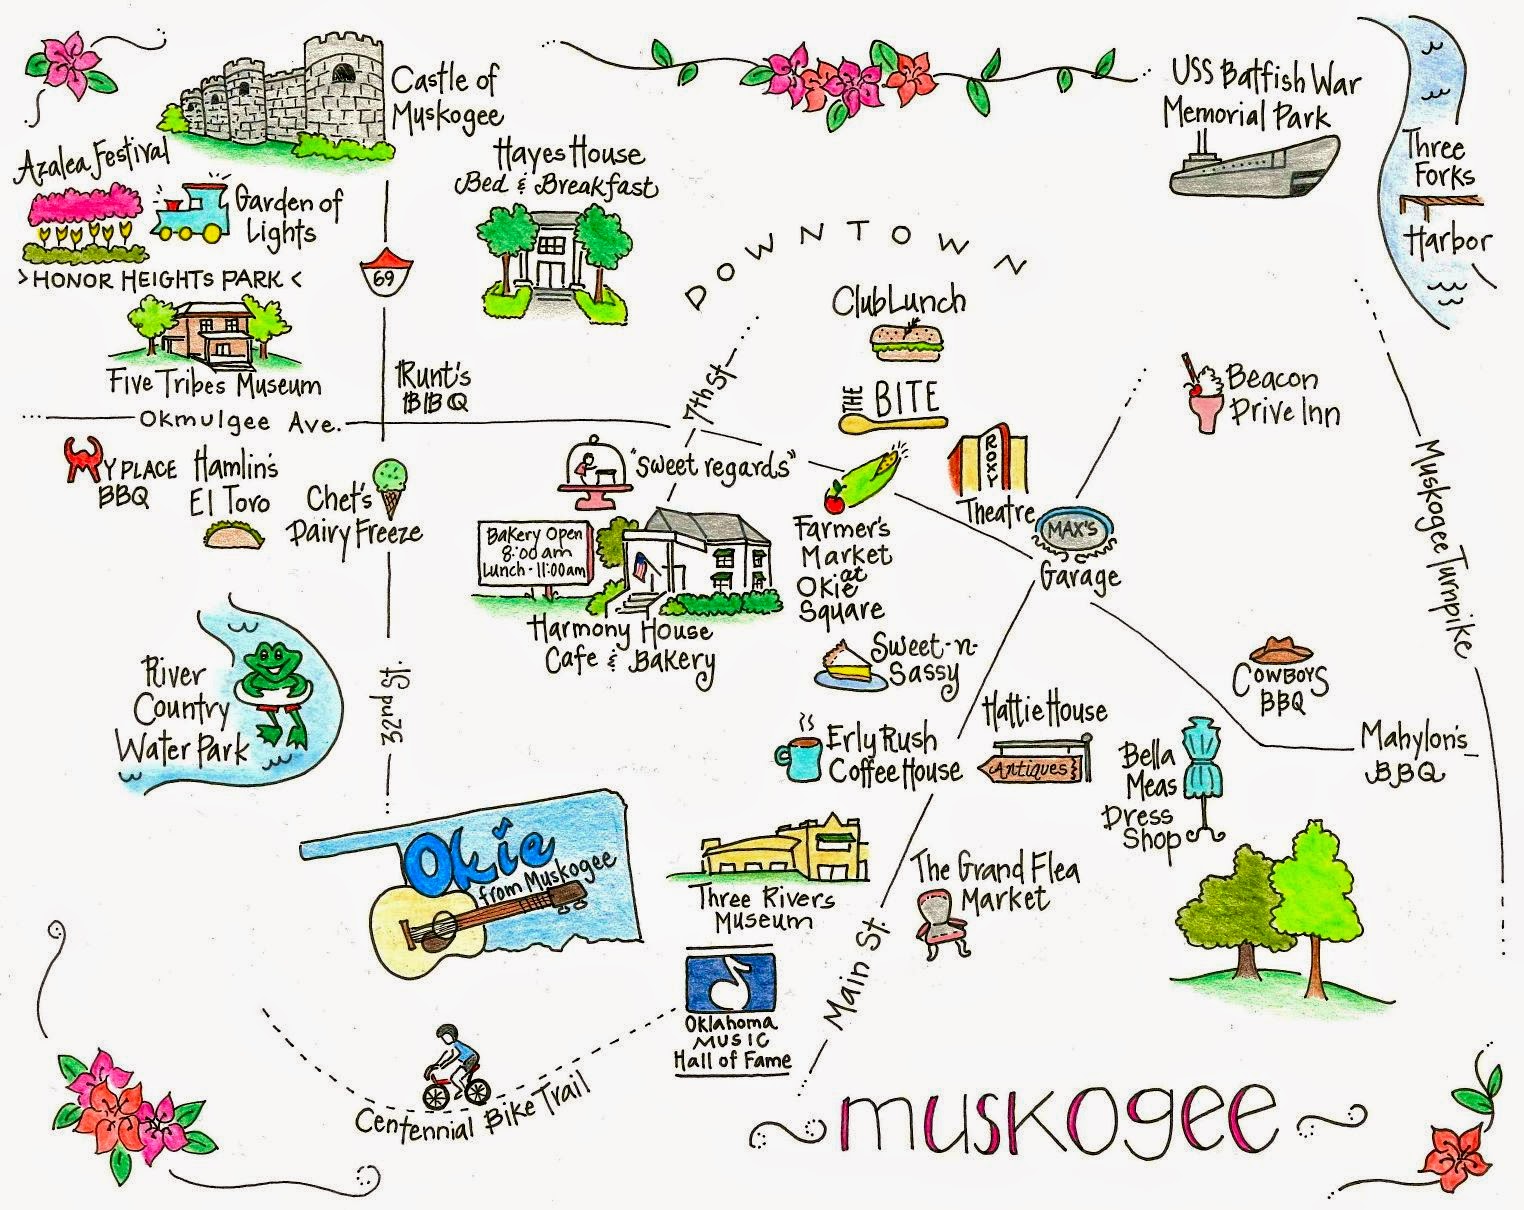 Castle of
Muskogee
USS Batfish War
Memorial Park
Three
Forks
Harbor
Azalea Festival
Garden of
Lights
>HONOR HEIGHTS PARK<
Hayes House
Bed & Breakfast
DOWNTOWN
69
Five Tribes Museum
Runt's
BBQ
Okmulgee Ave.
7th St
Club Lunch
THE BITE
Beacon
Drive Inn
MY PLACE
BBQ
Hamlin's
El Toro
Chet's
Dairy Freeze
"Sweet regards"
ROXY
Theatre
MAX'S
Garage
Muskogee Turnpike
Bakery Open
8:00am
Lunch - 11:00am
Harmony House
Cafe & Bakery
Farmer's
Market
at
Okie
Square
Sweet-n-
Sassy
River
Country
Water Park
32nd St.
Erly Rush
Coffee House
Hattie House
Antiques
Cowboys
BBQ
Bella
Meas
Dress
Shop
Mahylon's
BBQ
Okie
from Muskogee
Three Rivers
Museum
The Grand Flea
Market
Main St.
Oklahoma
Music
Hall of Fame
Centennial Bike Trail
muskogee